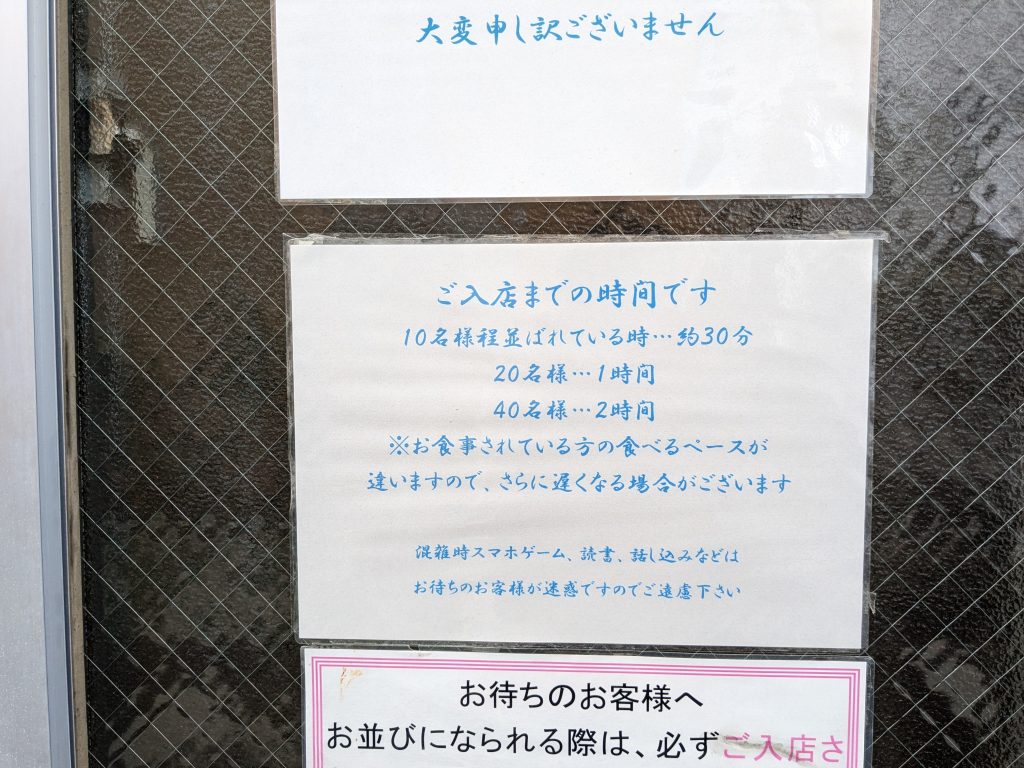 大変申し訳ございません
ご入店までの時間です
10名様程並ばれている時…約30分
20名様…1時間
40名様…2時間
※お食事されている方の食べるペースが
違いますので、さらに遅くなる場合がございます
混雑時スマホゲーム、読書、話し込みなどは
お待ちのお客様が迷惑ですのでご遠慮下さい
お待ちのお客様へ
お並びになられる際は、必ずご入店さ